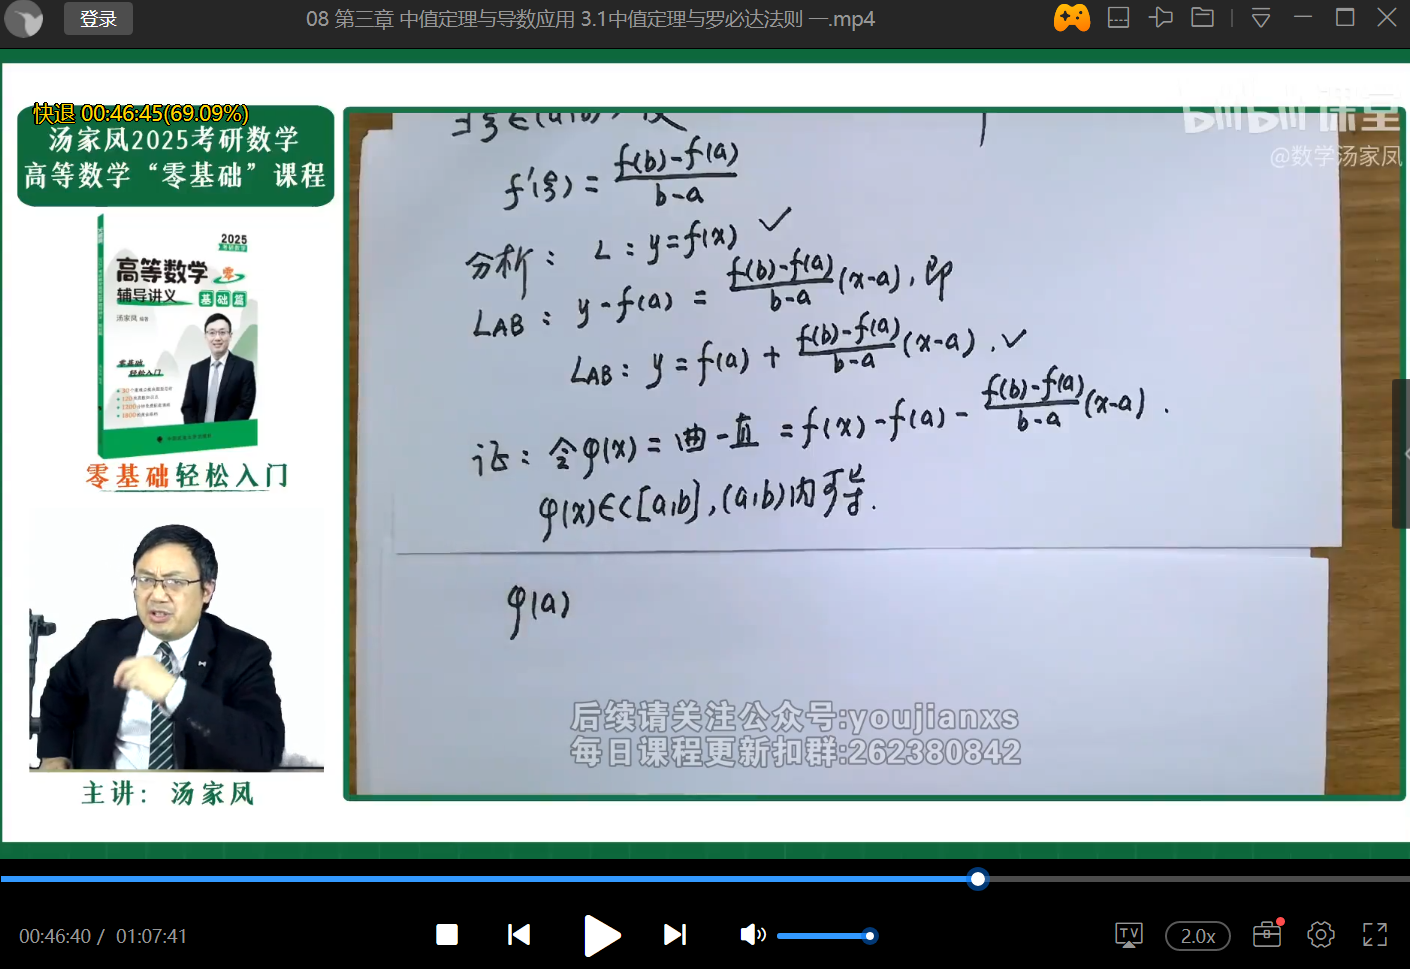 登录
08 第三章 中值定理与导数应用 3.1中值定理与罗必达法则 一.mp4
快退 00:46:45(69.09%)
汤家凤2025考研数学
高等数学“零基础”课程
bilibili课堂
@数学汤家凤
2025
高等数学 零
辅导讲义 基础篇
汤家凤 编著
零基础
轻松入门
零基础轻松入门
主讲：汤家凤
∃ξ∈(a,b), 使
f'(ξ) = f(b)-f(a) / b-a
分析： L：y=f(x) ✓
L_AB： y-f(a) = f(b)-f(a) / b-a (x-a), 即
L_AB：y=f(a)+ f(b)-f(a) / b-a (x-a). ✓
证：令φ(x)=曲-直=f(x)-f(a)- f(b)-f(a) / b-a (x-a).
φ(x)∈C[a,b], (a,b)内可导.
φ(a)
后续请关注公众号:youjianxs
每日课程更新扣群:262380842
00:46:40 / 01:07:41
TV
2.0x